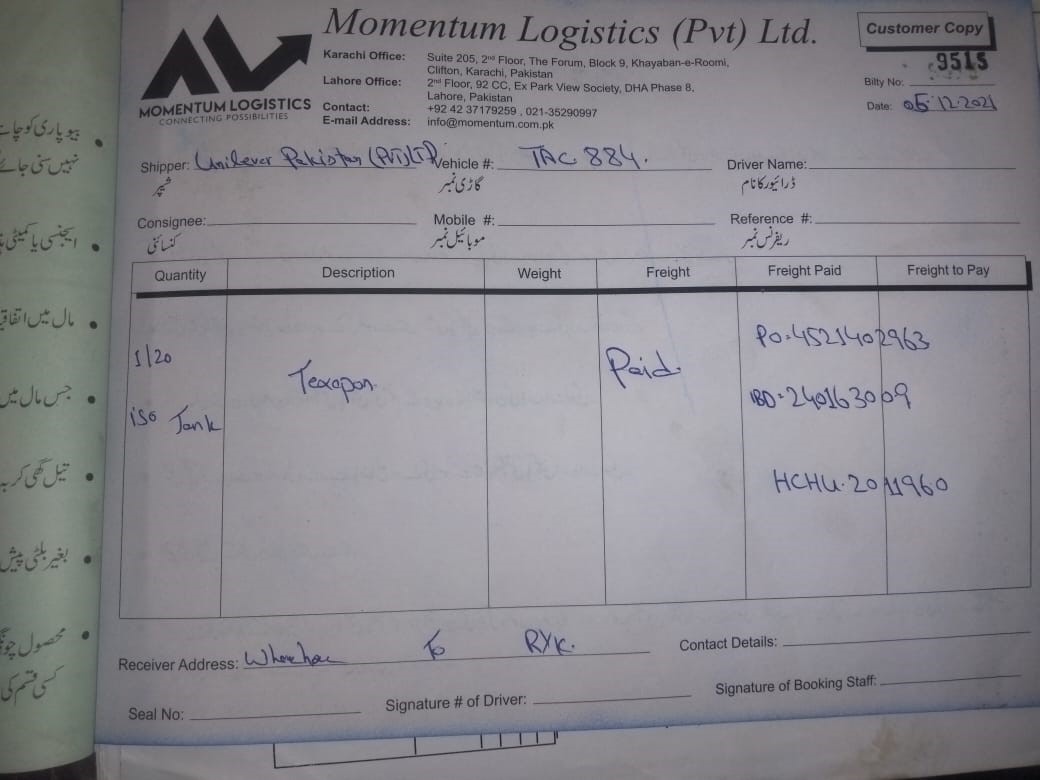 Momentum Logistics (Pvt) Ltd.
Customer Copy
MOMENTUM LOGISTICS
CONNECTING POSSIBILITIES
Karachi Office: Suite 205, 2nd Floor, The Forum, Block 9, Khayaban-e-Roomi,
Clifton, Karachi, Pakistan
Lahore Office: 2nd Floor, 92 CC, Ex Park View Society, DHA Phase 8,
Lahore, Pakistan
Contact: +92 42 37179259 , 021-35290997
E-mail Address: info@momentum.com.pk
Bilty No: 9515
Date: 05-12-2021
Shipper: Unilever Pakistan (Pvt) LTD Vehicle #: TAC 884. Driver Name:
شیپر گاڑی نمبر ڈرائیور کا نام
Consignee: Mobile #: Reference #:
کنسائنی موبائیل نمبر ریفرنس نمبر
Quantity Description Weight Freight Freight Paid Freight to Pay
1/20 Texapon Paid PO=4521402963
iso Tank IBD=240163009
HCHU.2011960
Receiver Address: To RYK. Contact Details:
Seal No: Signature # of Driver: Signature of Booking Staff:
بیوپاری کو چا
نہیں سنی جائے
ایجنسی یا کمیٹی
مال میں اتفاقیہ
جس مال میں
تیل گھی کر
بغیر بلٹی پیش
محصول چونگ
کسی قسم کی